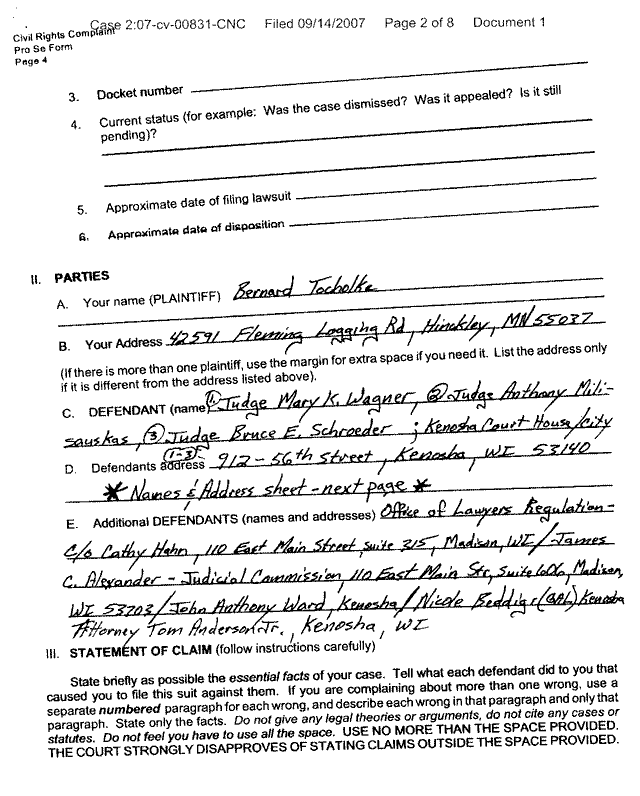 Case 2:07-cv-00831-CNC Filed 09/14/2007 Page 2 of 8 Document 1
Civil Rights Complaint
Pro Se Form
Page 4
3. Docket number
4. Current status (for example: Was the case dismissed? Was it appealed? Is it still
pending)?
5. Approximate date of filing lawsuit
6. Approximate date of disposition
II. PARTIES
A. Your name (PLAINTIFF) Bernard Tocholke
B. Your Address 42591 Fleming Logging Rd, Hinckley, MN 55037
(If there is more than one plaintiff, use the margin for extra space if you need it. List the address only
if it is different from the address listed above).
C. DEFENDANT (name) 1. Judge Mary K. Wagner, 2 Judge Anthony Mili-
sauskas, 3 Judge Bruce E. Schroeder ; Kenosha Court House/city
(1-3)
D. Defendants address 912-56th Street, Kenosha, WI 53140
* Names & Address sheet - next page *
E. Additional DEFENDANTS (names and addresses) Office of Lawyers Regulation-
C/o Cathy Hahn, 110 East Main Street, suite 315, Madison, WI / James
C. Alexander - Judicial Commission, 110 East Main Str, Suite 606, Madison,
WI 53703 / John Anthony Ward, Kenosha / Nicole (GAL) Kenosha
Attorney Tom Anderson Jr., Kenosha, WI
III. STATEMENT OF CLAIM (follow instructions carefully)
State briefly as possible the essential facts of your case. Tell what each defendant did to you that
caused you to file this suit against them. If you are complaining about more than one wrong, use a
separate numbered paragraph for each wrong, and describe each wrong in that paragraph and only that
paragraph. State only the facts. Do not give any legal theories or arguments, do not cite any cases or
statutes. Do not feel you have to use all the space. USE NO MORE THAN THE SPACE PROVIDED.
THE COURT STRONGLY DISAPPROVES OF STATING CLAIMS OUTSIDE THE SPACE PROVIDED.